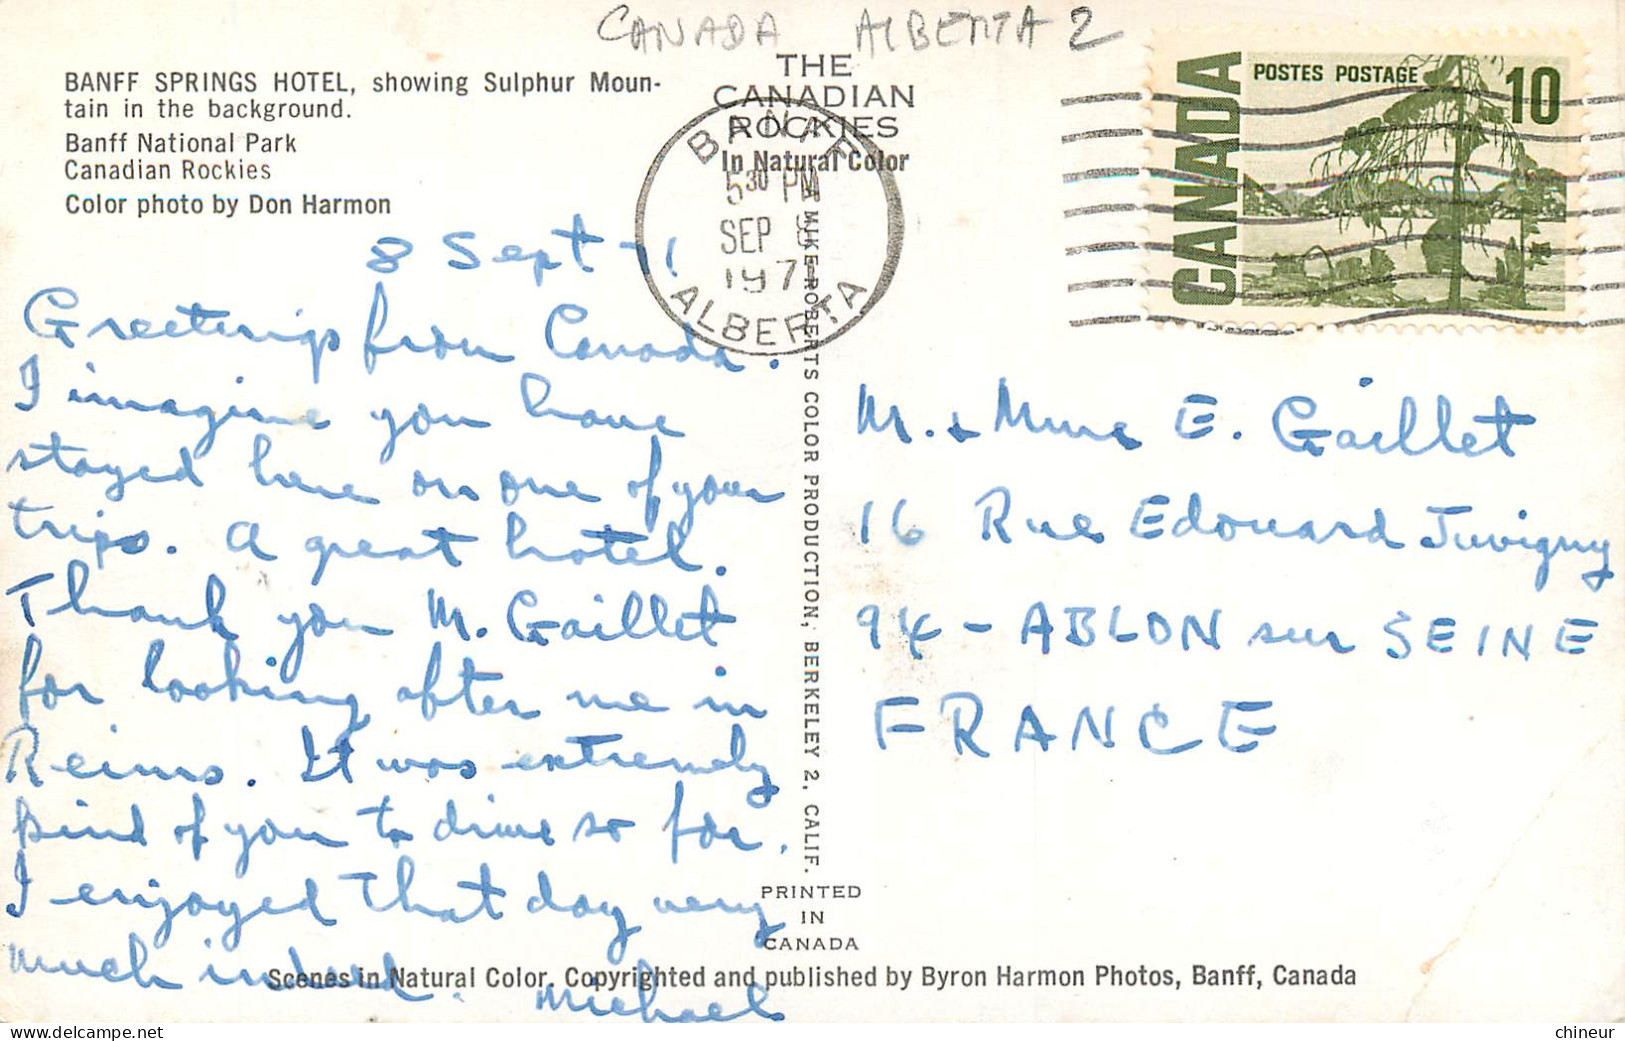 CANADA ALBERTA 2
BANFF SPRINGS HOTEL, showing Sulphur Moun-
tain in the background.
Banff National Park
Canadian Rockies
Color photo by Don Harmon
THE
CANADIAN
ROCKIES
In Natural Color
BANFF
5 30 PM
SEP
197
ALBERTA
CANADA
POSTES POSTAGE
10
8 Sept
Greetings from Canada.
I imagine you have
stayed here on one of your
trips. A great hotel.
Thank you M. Gaillet
for looking after me in
Reims. It was extremely
kind of you to drive so far.
I enjoyed that day very
much indeed. Michael
A MIKE ROBERTS COLOR PRODUCTION, BERKELEY 2, CALIF.
M. + Mme E. Gaillet
16 Rue Edouard Juvigny
94 - ABLON sur SEINE
FRANCE
PRINTED
IN
CANADA
Scenes in Natural Color. Copyrighted and published by Byron Harmon Photos, Banff, Canada
www.delcampe.net
chineur